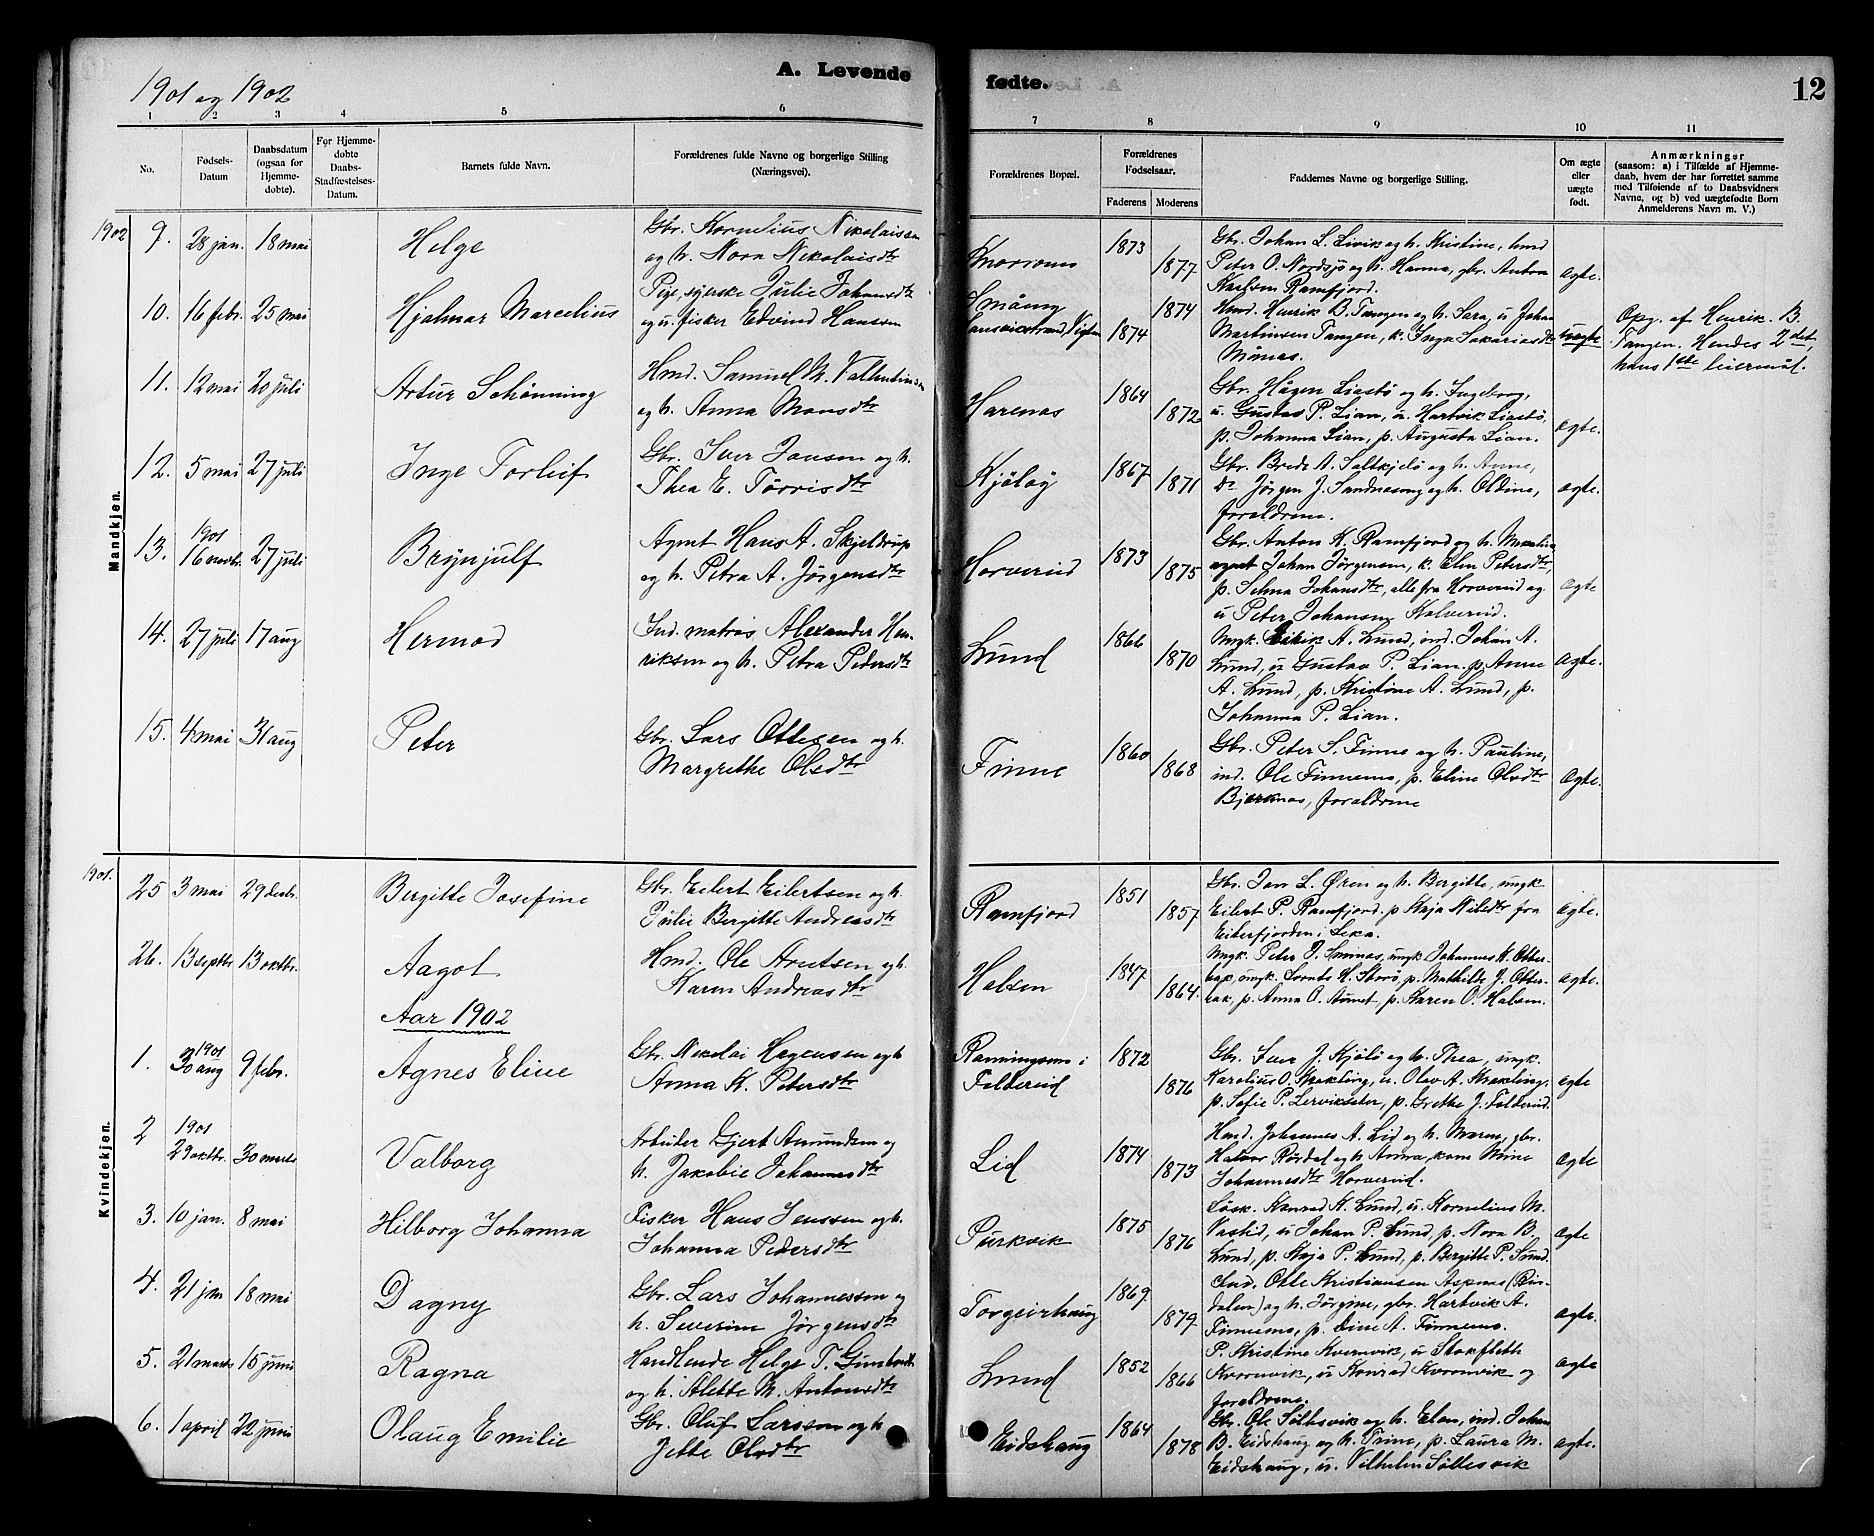 1901 og 1902
A. Levende
fødte.
12
1 2 3 4 5 6 7 8 9 10 11
No.
Fødsels-
Datum
Daabsdatum
(ogsaa for
Hjemme-
døbte).
For Hjemme-
døbte
Daabs-
Stadfæstelses-
Datum.
Barnets fulde Navn.
Forældrenes fulde Navne og borgerlige Stilling
(Næringsvei).
Forældrenes Bopæl.
Forældrenes
Fødselsaar.
Faderens Moderens
Faddernes Navne og borgerlige Stilling.
Om ægte
eller
uægte
født.
Anmærkninger
(saasom: a) i Tilfælde af Hjemme-
daab, hvem der har forrettet samme
med Tilføiende af to Daabsvidners
Navne, og b) ved uægtefødte Børn
Anmelderens Navn m. V.)
Mandkjøn.
1902
9. 28 jan. 18 mai Helge
Gbr. Kornelius Nikolaisen
og h. Nora Nikolaisdtr
1873 1877
Gbr. Johan L. Livik og h. Kristine, hmd
Peter O. Nordsjø og h. Hanna, gbr. Anton
Karlsen Ramfjord.
ægte.
10. 16 febr. 25 mai Hjalmar Marcelius
Pige, syerske Julie Johansdtr
og u. fisker Edvind Hansen
1874 1874
Hmd. Henrik B. Tangen og h. Sara, u. Johan
Martinsen Tangen, k. Inga Sakariasdtr
uægte
Opg. af Henrik B.
Tangen. Hendes 2det,
hans 1ste leiermål.
11. 12 mai 20 juli Artur Schønning
Hmd. Samuel M. Valentinsen
og h. Anna Mansdtr
Horsnes
1864 1872
Gbr. Hågen Liastø og h. Ingeborg,
u. Gustav P. Lian, u. Hartvik Liastø,
p. Johanna Lian, p. Augusta Lian.
ægte.
12. 5 mai 27 juli Inge Torleif
Gbr. Iver Jonsen og h.
Thea E. Tørrisdtr
Kjøløy
1867 1871
Gbr. Brede A. Saltkjelø og h. Anne,
Do Jørgen J. Sandnæsøng og h. Oldine,
forældrene.
ægte.
13. 1901 16 novbr. 27 juli Brynjulf
Agent Hans A. Skjeldrup
og h. Petra A. Jørgensdtr
Horverid
1873 1875
Gbr. Anton K. Ramfjord og h.
agent Johan Jørgensen, k. Elen Petersdtr,
p. Selma Johansdtr, alle fra Horverid og
u Peter Johansen Kalverid.
ægte
14. 27 juli 17 aug Hermod
Ind. matros Alexander Hen-
riksen og h. Petra Pedersdtr
Lund
1866 1870
Ungk. Eirik A. Lund, ind. Johan A.
Lund, u Gustav P. Lian. p. Anne
A. Lund, p. Kristine A. Lund, p.
Johanna P. Lian.
ægte.
15. 4 mai 31 aug Peter
Gbr. Lars Ottesen og h.
Margrethe Olsdtr
Finne
1860 1868
Gbr. Peter S. Finne og h. Pauline,
ind. Ole Finnemo, p. Eline Olsdtr
Bjerknes, forældrene
ægte.
Kvindekjøn.
1901.
25 3 mai 29 decbr. Bergitte Josefine
Gbr. Eilert Eilertsen og h.
Julie Bergitte Andreasdtr
Ramfjord
1851 1857
Gbr. Jon L. Øren og h. Bergitte, ungk
Eilert P. Ramfjord. p Kaja Nilsdtr fra
Eiterfjorden i Leka.
ægte.
26. 13 septbr 13 oktbr. Aagot
Hmd. Ole Arntsen og h.
Karen Andreasdtr
Halsen
1847 1864.
Ungk. Peter J. Smånes, ungk Johannes K. Otter-
bak, ungk. Lornts H. Storø, p. Mathilde J. Otter-
bak, p. Anna O. Aømet, p. Karen O. Halsen.
ægte.
Aar 1902
1. 1901 30 aug 9 febr. Agnes Eline
Gbr. Nikolai Hagensen og h
Anna K. Petersdtr
Ramningsmo i
Foldereid
1872 1876
Gbr. Iver J. Kjøløi og h. Thea, ungk.
Karolius O. Krækling, u. Olav A. Krækling.
p. Sofie P. Lervikseter, p. Grethe J. Foldereid.
ægte
2 1901 29 oktbr. 30 marts Valborg
Arbeider Gjert Amundsen og
h. Jakobie Johannesdtr
Lid
1874 1873
Hmd. Johannes A. Lid og h. Maren, gbr.
Halvor Rørdal og h Anna, kone Mine
Johannesdtr Horverid.
ægte
3. 10 jan. 8 mai Hilborg Johanna
Fisker Hans Jenssen og h.
Johanna Pedersdtr
Purkvik
1875 1876
Løsk. Konrad K. Lund, u. Kornelius M.
Vaslid, u Johan P. Lund, p. Nora B.
Lund, p. Kaja P. Lund, p. Bergitte P. Lund
ægte
4. 21 jan 18 mai Dagny
Gbr. Lars Johannessen og
h. Severine Jørgensdtr
Torgeirhaug
1869 1879
Ind. Otte Kristiansen Aspnes (Rin-
dalen) og h. Jørgine, gbr. Hartvik A.
Finnemo, p. Dine A. Finnemo.
ægte.
5. 21 marts 15 juni Ragna
Handlende Helge T.
og h. Alette M. Antonsdtr
Lund
1852 1866
P. Kristine Kvernvik, u Stokfleth
Kvernvik, u Konrad Kvernvik og
forældrene.
ægte
6. 1 april 22 juni Olaug Emilie
Gbr. Oluf Larssen og h
Jette Olsdtr
Eidshaug
1864 1878
Gbr. Ole Sølksvik og h. Elen, ind. Johan
B. Eidshaug og h. Trine, p. Laura M.
Eidshaug, u. Vilhelm Søllesvik
ægte.